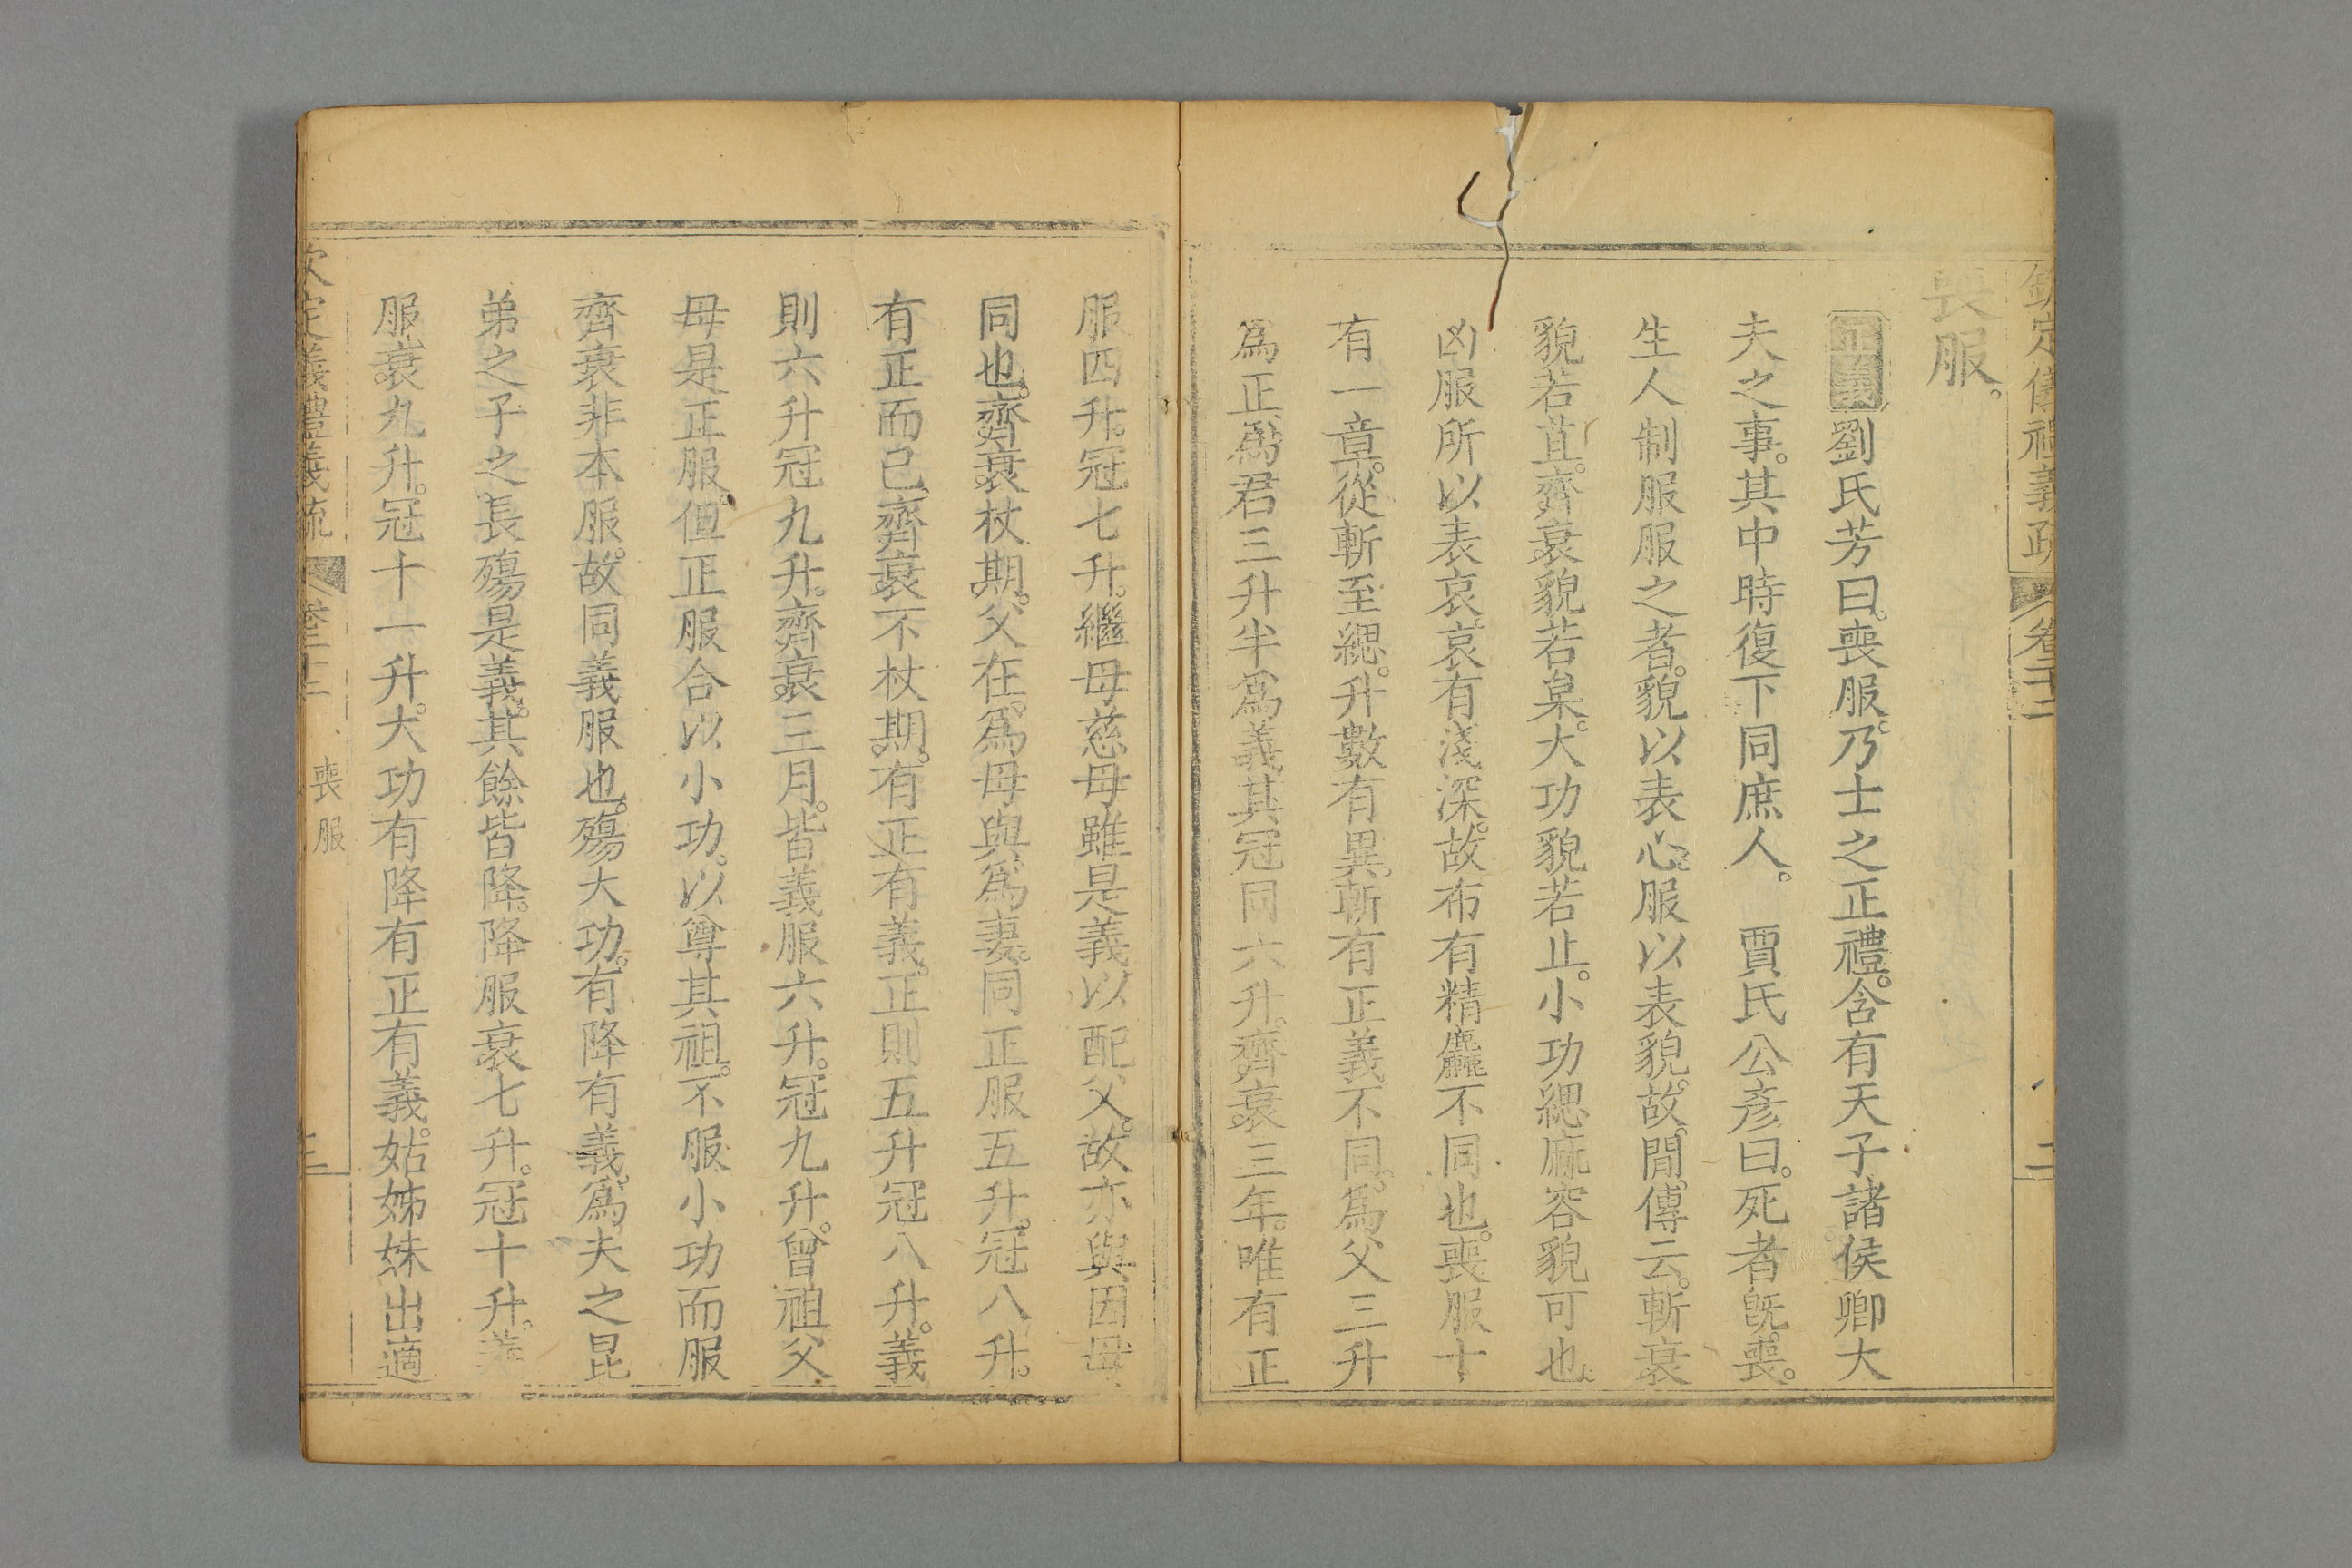 欽定儀禮義疏 卷二十二 二
喪服。
正義劉氏芳曰。喪服。乃士之正禮。含有天子諸侯卿大
夫之事。其中時復下同庶人。 賈氏公彥曰。死者旣喪。
生人制服服之者。貌以表心。服以表貌。故閒傳云。斬衰
貌若苴。齊衰貌若枲。大功貌若止。小功緦麻容貌可也。
凶服所以表哀。哀有淺深。故布有精麤不同也。喪服十
有一章。從斬至緦。升數有異。斬有正義不同。爲父三升
爲正。爲君三升半爲義。其冠同六升。齊衰三年。唯有正
服四升。冠七升。繼母慈母雖是義。以配父。故亦與因母
同也。齊衰杖期。父在。爲母與爲妻。同正服五升。冠八升。
有正而已。齊衰不杖期。有正有義。正則五升冠八升。義
則六升冠九升。齊衰三月。皆義服六升。冠九升。曾祖父
母是正服。但正服合以小功。以尊其祖。不服小功而服
齊衰。非本服。故同義服也。殤大功。有降有義。爲夫之昆
弟之子之長殤是義。其餘皆降。降服衰七升。冠十升。義
服衰九升。冠十一升。大功有降有正有義。姑姊妹出適
欽定義禮義疏 卷二十二 喪服 三